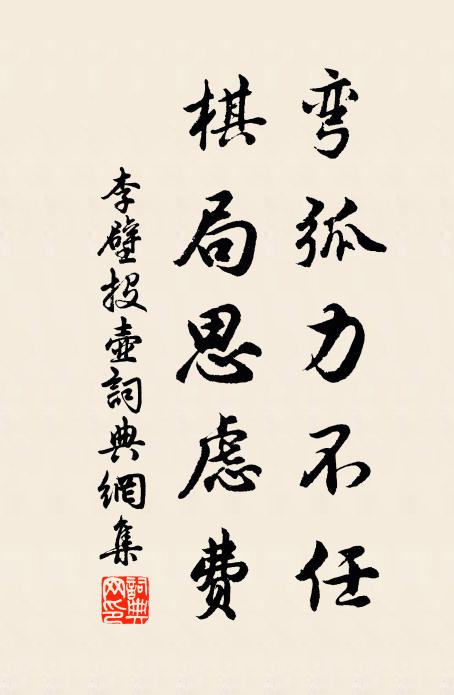 弯弧力不任
棋局思虑费
李壁投壶詞典網集
詞典